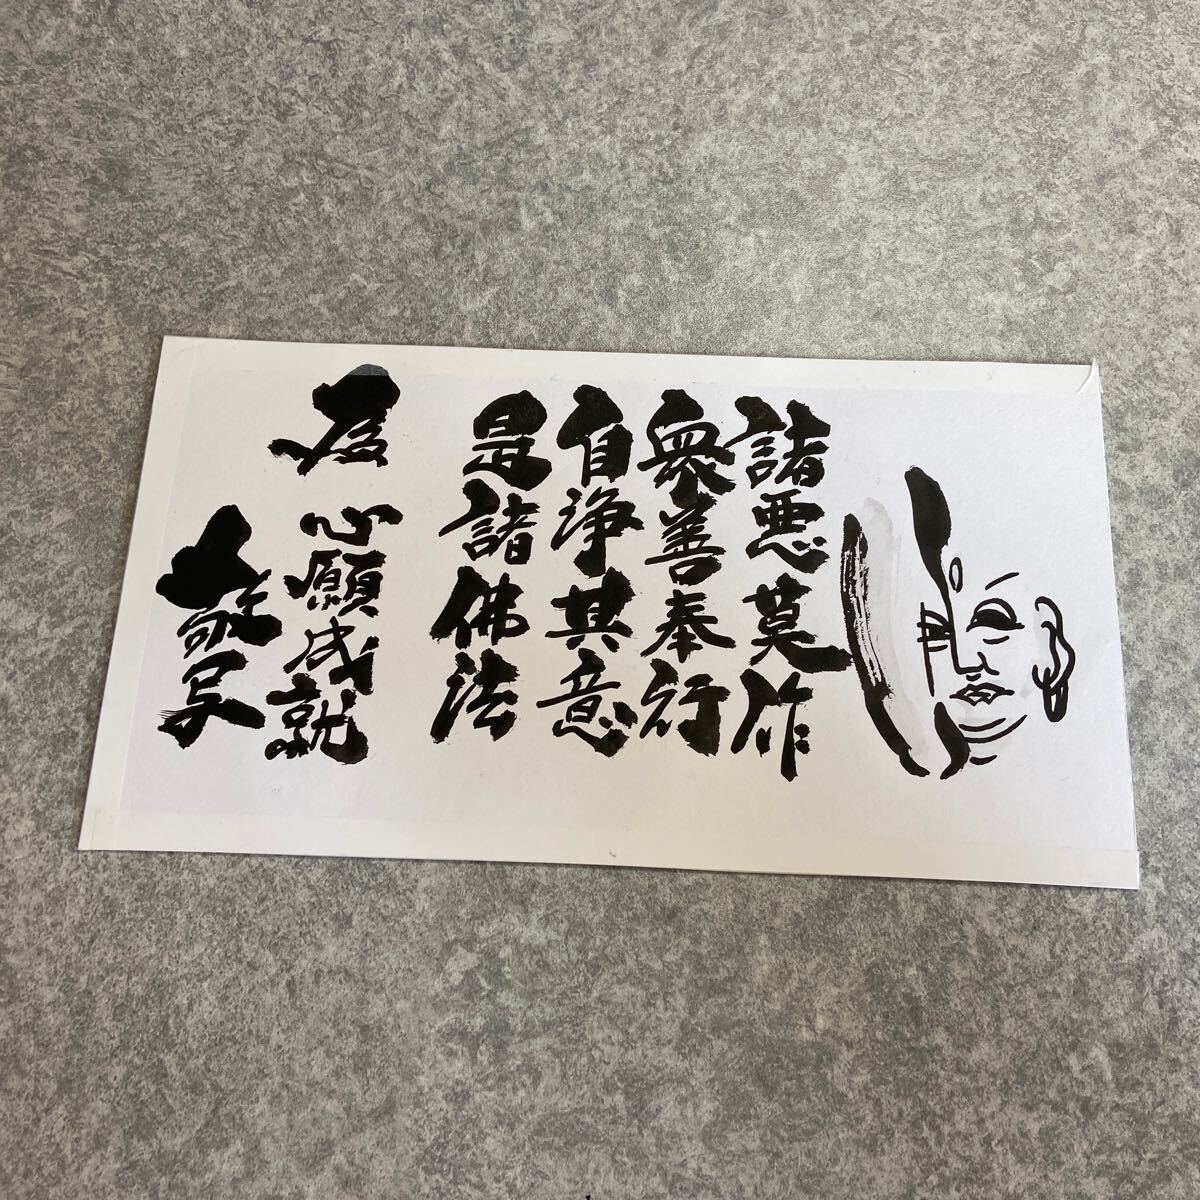 諸悪莫作
衆善奉行
自浄其意
是諸佛法
為 心願成就
敬写